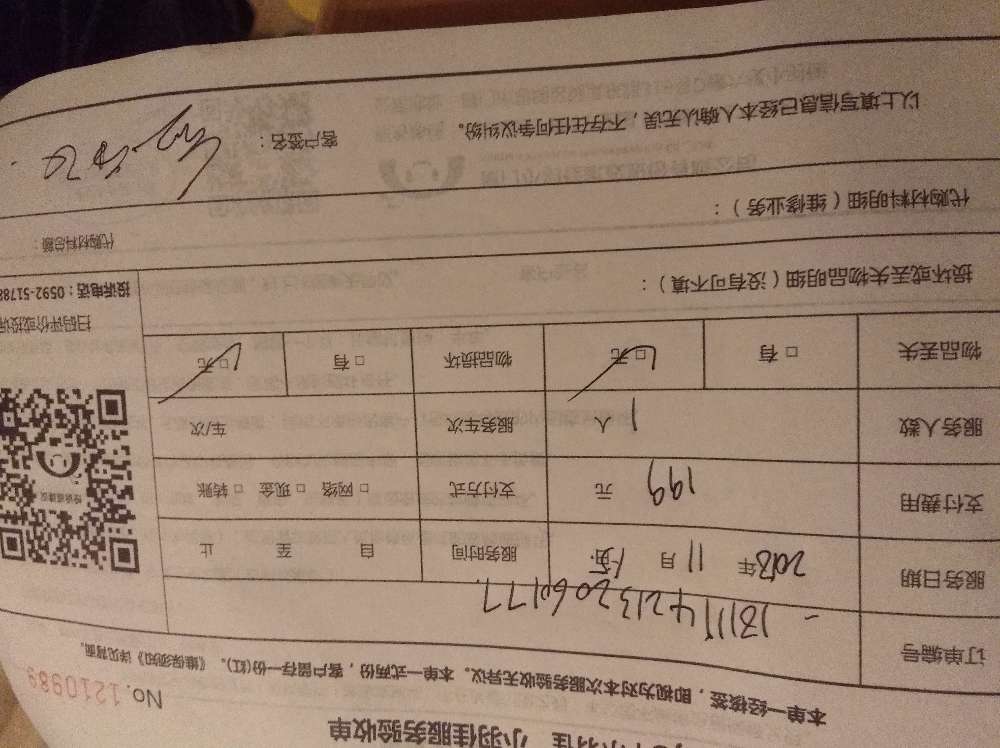 小羽佳 小羽佳服务验收单
No.1210989
本单一经核签，即视为对本次服务验收无异议。本单一式两份，客户留存一份(红)。《维保须知》详见背面。
订单编号
服务日期 2018年 11月 服务时间 自 至 止
支付费用 199 元 支付方式 □网络 □现金 □转账
服务人数 1 人 服务车次 车/次
物品丢失 □有 □无 物品损坏 □有 □无
扫码评价或投诉
投诉电话：0592-51788
损坏或丢失物品明细（没有可不填）：
代购材料明细（维修业务）：
代购材料总额：
以上填写信息已经本人确认无误，不存在任何争议纠纷。 客户签名：